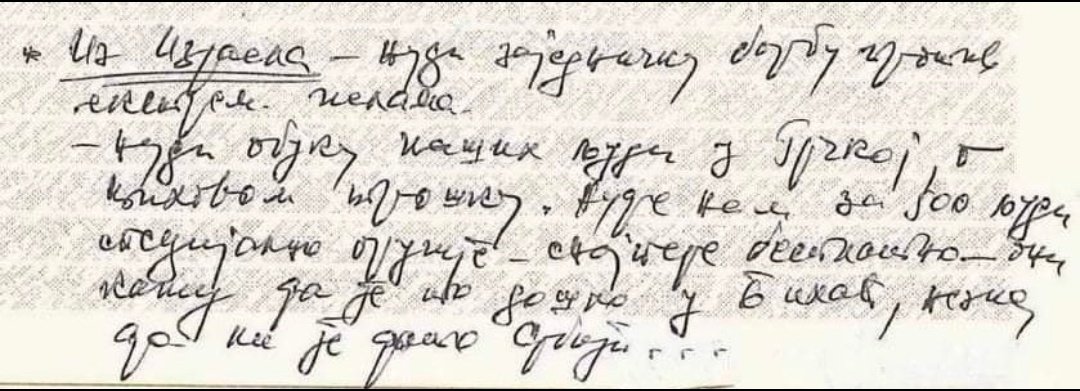 * Из Израела – нуди заједничку борбу против
екстрем. ислама.
– Нуди обуку наших људи у Грчкој, о
њиховом трошку. Нуде нам за 500 људи
специјално оружје – снајпере бесплатно – они
кажу да је то дошло у Бихаћ, незна
да ли је дошло Србији...